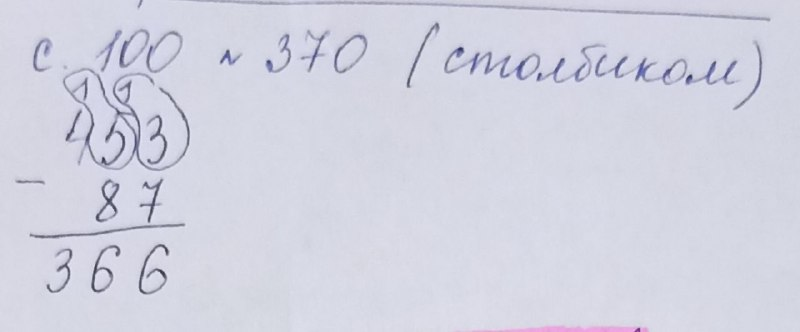 с. 100 № 370 (столбиком)
1 1
453
- 87
366